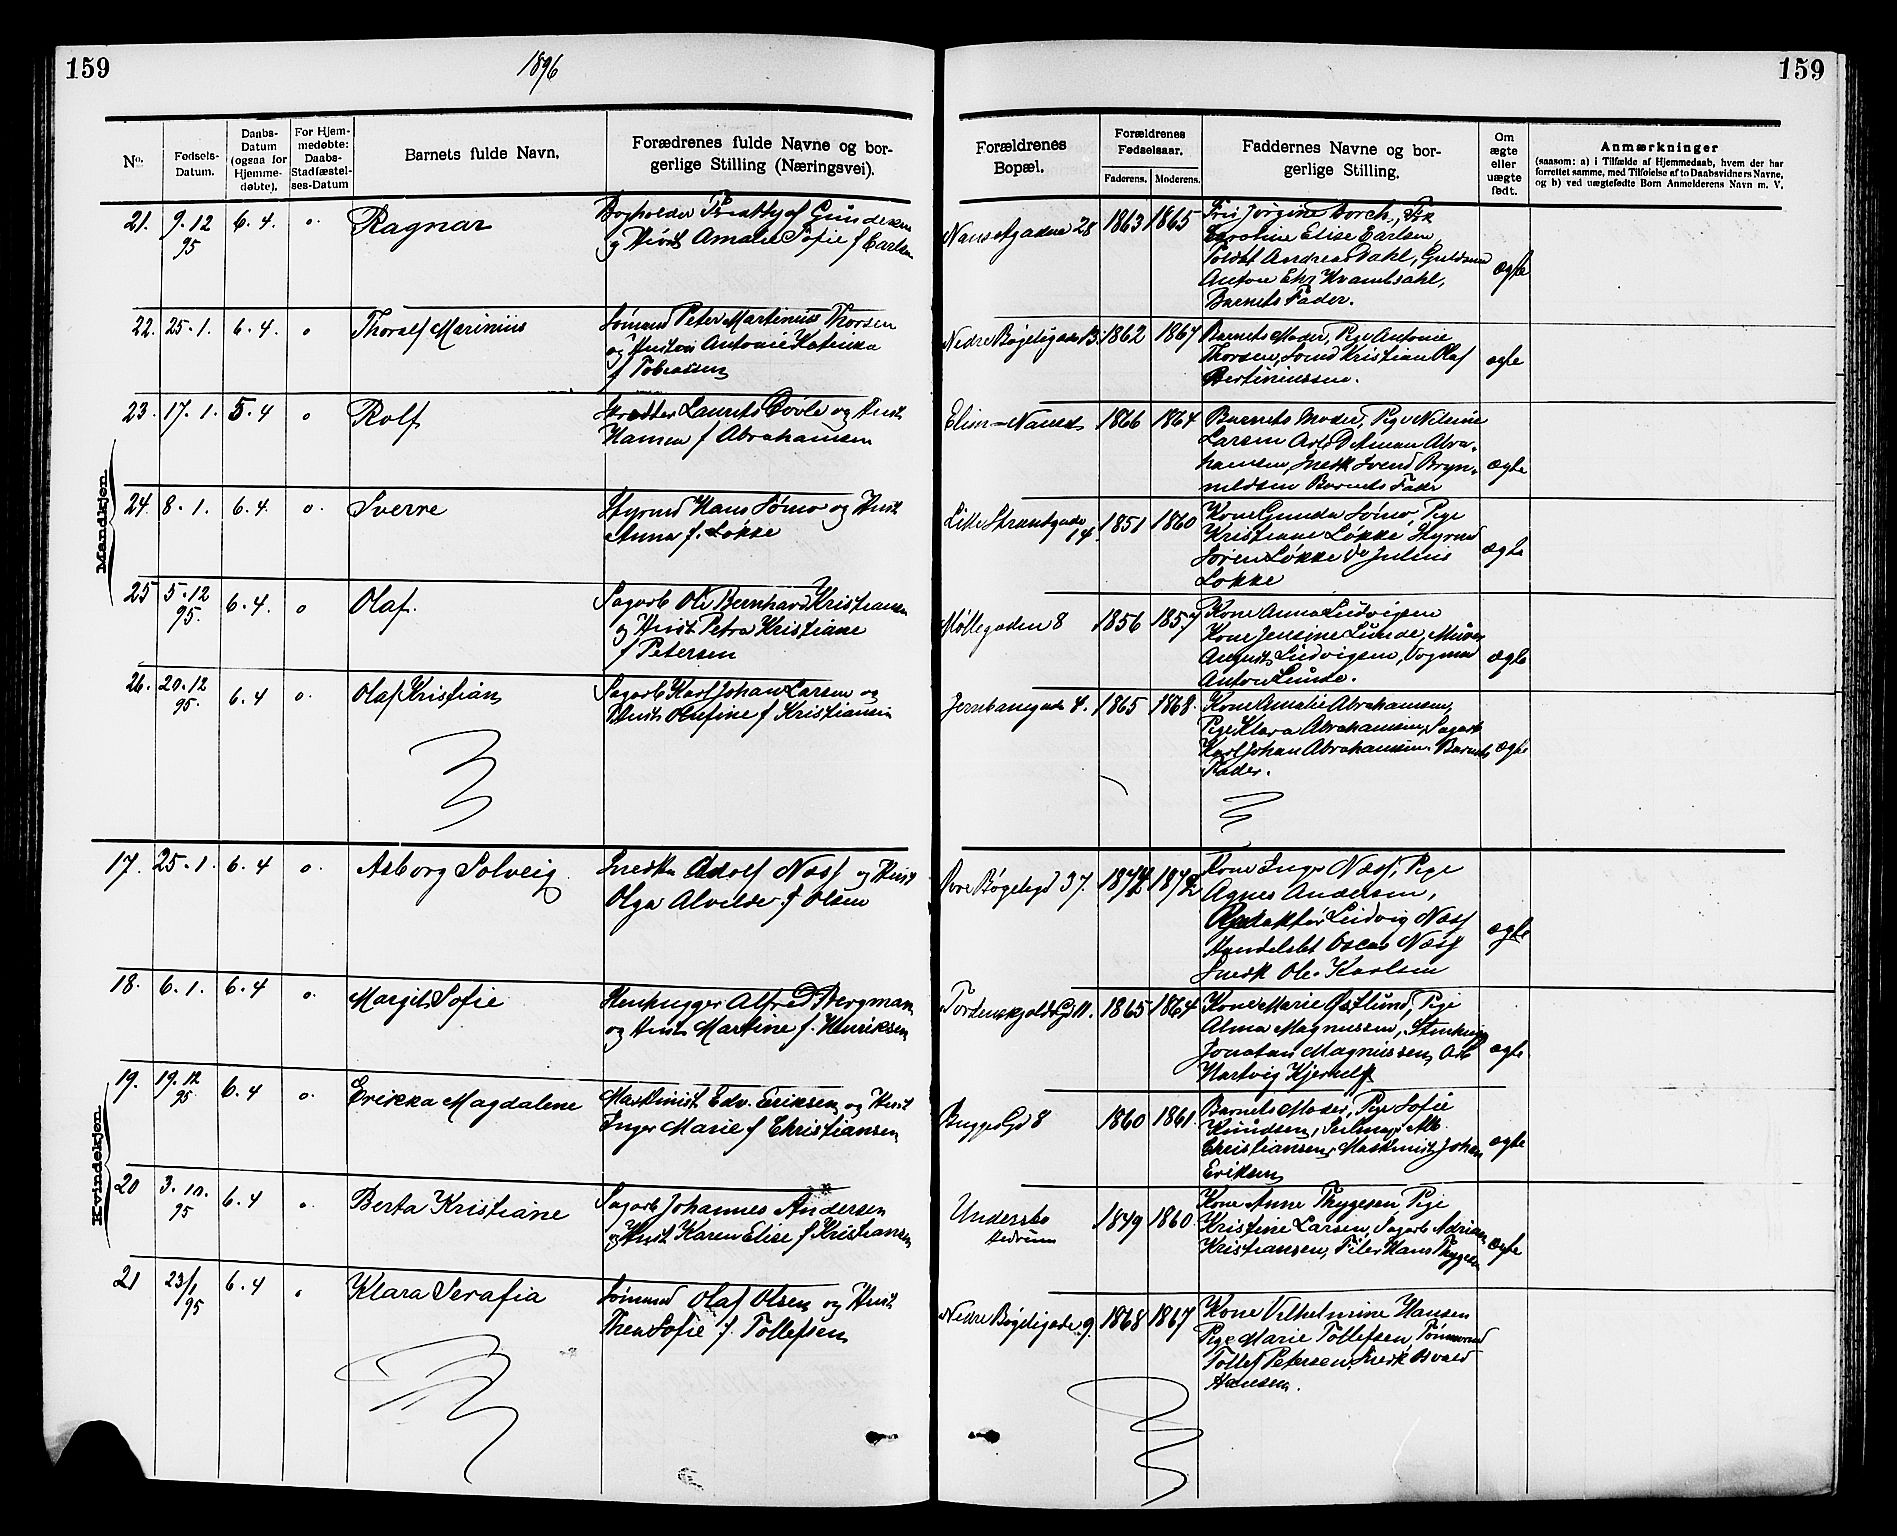 159
1896
159
No.
Fødsels-Datum.
Daabs-Datum (ogsaa for Hjemmedøbte).
For Hjemmedøbte: Daabs-Stadfæstelses-Datum
Barnets fulde Navn.
Forædrenes fulde Navne og borgerlige Stilling (Næringsvei).
Forældrenes Bopæl.
Forældrenes Fødselsaar.
Faderens. Moderens.
Faddernes Navne og borgerlige Stilling.
Om ægte eller uægte født.
Anmærkninger
(saasom: a) i Tilfælde af Hjemmedaab, hvem der har
forrettet samme, med Tilføielse af to Daabsvidners Navne,
og b) ved uægtefødte Børn Anmelderens Navn m. V.
Mandkjøn.
21. 9.12 95 6.4. o. Ragnar
Bogholder Gundersen
og Hust Amalie Sofie f Carlsen
Nansetgaden 28 1863 1865
Frk Jørgine Borch, Frk
Caroline Elise Carlsen
Andreas Dahl,
Anton
Barnets Fader.
ægte
22. 25.1. 6.4. o Thoralf Marinius
Sømand Peter Martinius Thorsen
og Hustru Antonie Katinka
f Tobiassen
Nedre Bøgeligade 13. 1862 1867
Barnets Moder, Pige Antonie
Thorsen, Sømd Kristian Olaf
Bertiniussen.
ægte
23. 17.1. 5.4 o Rolf
Laurits og Hust
Hansen f Abrahamsen
Elim - Nanset 1866 1864
Barnets Moder, Pige Nilsine
Larsen Arb Abra-
hamsen, Snedk Svend Bryn-
nildsen Barnets Fader
ægte
24. 8.1. 6.4. o. Sverre
Styrmd Hans Sømo og Hust
Anna f. Løkke
Lille Strandgade 14. 1851 1860
Kone Gunda Sømo, Pige
Kristiane Løkke Styrmd
Søren Løkke do Julius
Løkke
ægte
25 5.12 95. 6.4. o Olaf.
Sagarb Ole Bernhard Kristiansen
og Hust Petra Kristiane
f Petersen
Møllegaden 8 1856 1857
Kone Anna Ludvigsen
Kone Jensine Lunde, Murer
August Ludvigsen, Vognmd
Anton Lunde.
ægte
26. 20.12 95. 6.4 o. Olaf Kristian
Sagarb Karl Johan Larsen og
Hust Olufine f Kristiansen
Jernbanegade 4. 1865 1868.
Kone Amalie Abrahamsen,
Pige Klara Abrahamsen, Sagarb
Karl Johan Abrahamsen Barnets
Fader.
ægte
Kvindekjøn.
17. 25.1. 6.4 o. Asborg Solveig
Snedker Adolf Næss og Hust
Olga Alvilde f Olsen
Øvre Bøgeligd 37. 1872
Kone Inger Næss, Pige
Agnes Andersen,
Redaktør Ludvig Næss
Handelsbt Oscar Næss
Snedk Ole Karlsen
ægte
18. 6.1. 6.4 o. Margit Sofie
Stenhugger Alfred Bergman
og Hust Martine f. Henriksen
Tordenskjolds Gd 11. 1865 1864
Kone Marie Østlund, Pige
Alma Magnussen, Stenhugg
Jonatan Magnussen, Arb
Hartvig
ægte
19. 19.12 95. 6.4 o. Erikka Magdalene
Maskinist Edv. Eriksen og Hust
Inger Marie f Christiansen
Bugges Gd 8 1860 1861.
Barnets Moder, Pige Sofie
Knudsen, Alb.
Christiansen, Maskinist Johan
Eriksen
ægte
20 3.10. 95 6.4 o Berta Kristiane
Sagarb Johannes Andersen
og Hust Karen Elise f Kristiansen
Undersbo
Hedrum
1849 1860
Kone Anne Thygesen Pige
Kristine Larsen, Sagarb Adrian
Kristiansen, Filer Hans Thygesen
ægte
21 23/1 95 6.4 o Klara Serafia
Sømmd Olaf Olsen og Hust
Thea Sofie f. Tollefsen
Nedre Bøgeligade 9. 1868 1867
Kone Vilhelmine Hansen
Pige Marie Tollefsen, Tømmermd
Tollef Petersen, Snedk Osvald
Hansen.